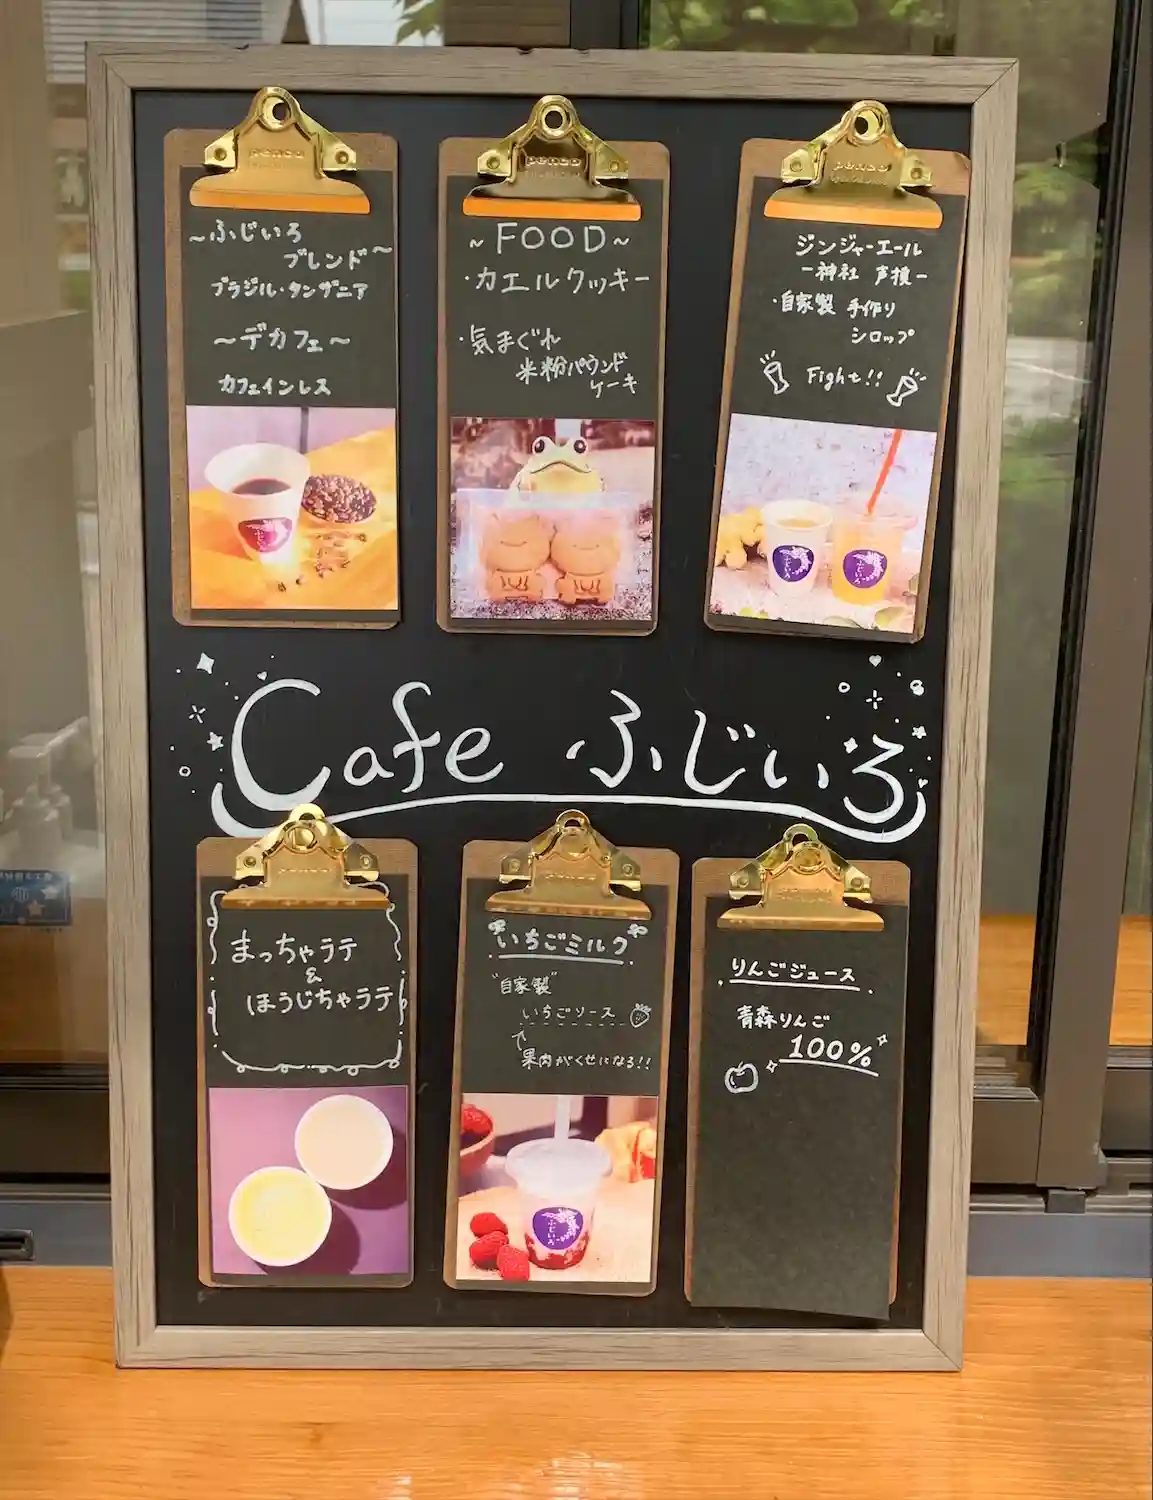 penco
~ふじいろ
ブレンド~
ブラジル・タンザニア
~デカフェ~
カフェインレス
ふじいろ
penco
~FOOD~
・カエルクッキー
・気まぐれ
米粉パウンド
ケーキ
penco
ジンジャーエール
-神社 声援-
・自家製 手作り
シロップ
Fight!!
ふじいろ
ふじいろ
Cafe ふじいろ
penco
まっちゃラテ
&
ほうじちゃラテ
penco
いちごミルク
"自家製"
いちごソース
果肉がくせになる!!
ふじいろ
penco
りんごジュース
青森りんご
100%